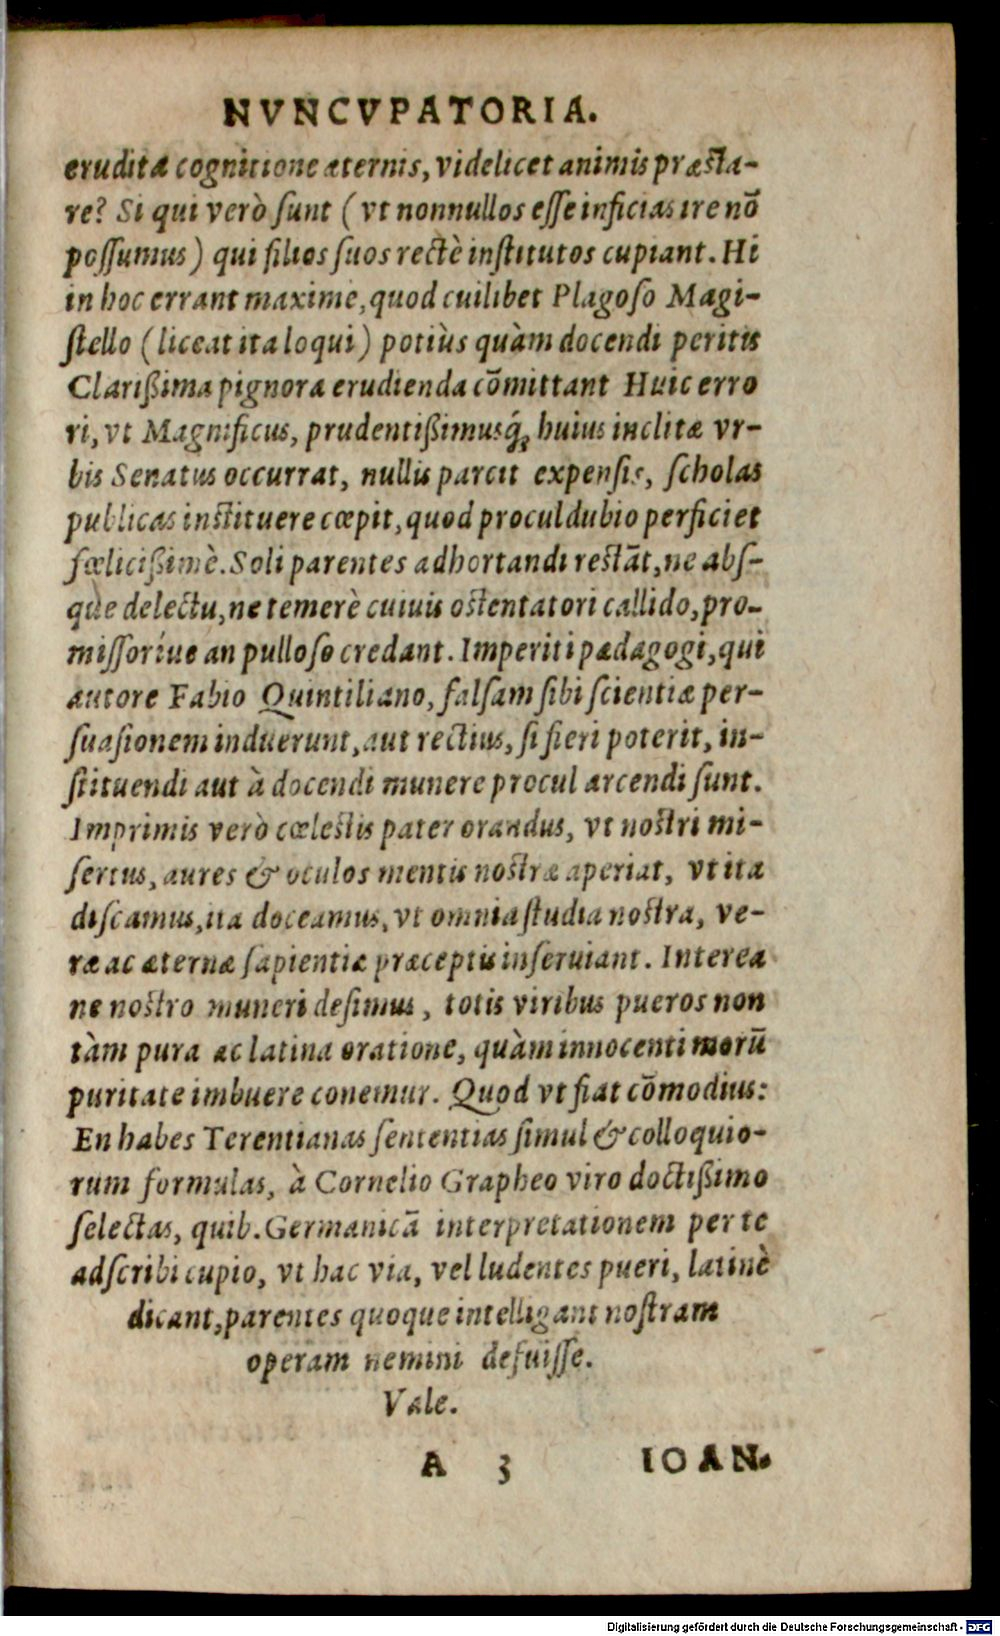 NVNCVPATORIA.
eruditæ cognitione æternis, videlicet animis præsta-
re? Si qui verò ſunt ( vt nonnullos eſſe inficias ire nō
poſſumus ) qui filios ſuos rectè inſtitutos cupiant. Hi
in hoc errant maximè, quod cuilibet Plagoſo Magi-
ſtello ( liceat ita loqui ) potiùs quàm docendi peritis
Clarißima pignora erudienda cōmittant Huic erro
ri, vt Magnificus, prudentißimusq́; huius inclitæ vr-
bis Senatus occurrat, nullis parcit expenſis, ſcholas
publicas inſtituere cœpit, quod proculdubio perficiet
fœlicißimè. Soli parentes adhortandi reſtāt, ne abſ-
que delectu, ne temerè cuiuis oſtentatori callido, pro-
miſſoriúe an pulloſo credant. Imperiti pædagogi, qui
autore Fabio Quintiliano, falſam ſibi ſcientiæ per-
ſuaſionem induerunt, aut rectius, ſi fieri poterit, in-
ſtituendi aut à docendi munere procul arcendi ſunt.
Imprimis verò cœleſtis pater orandus, vt noſtri mi-
ſertus, aures & oculos mentis noſtræ aperiat, vt ita
diſcamus, ita doceamus, vt omnia ſtudia noſtra, ve-
ræ ac æternæ ſapientiæ præceptis inſeruiant. Interea
ne noſtro muneri deſimus, totis viribus pueros non
tàm pura ac latina oratione, quàm innocenti morū
puritate imbuere conemur. Quod vt fiat cōmodius:
En habes Terentianas ſententias ſimul & colloquio-
rum formulas, à Cornelio Grapheo viro doctißimo
ſelectas, quib. Germanicā interpretationem per te
adſcribi cupio, vt hac via, vel ludentes pueri, latinè
dicant, parentes quoque intelligant noſtram
operam nemini defuiſſe.
Vale.
A 3 IOAN.
Digitalisierung gefördert durch die Deutsche Forschungsgemeinschaft - DFG